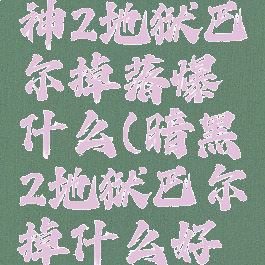 神2地狱巴
尔掉落爆
什么(暗黑
2地狱巴尔
掉什么好